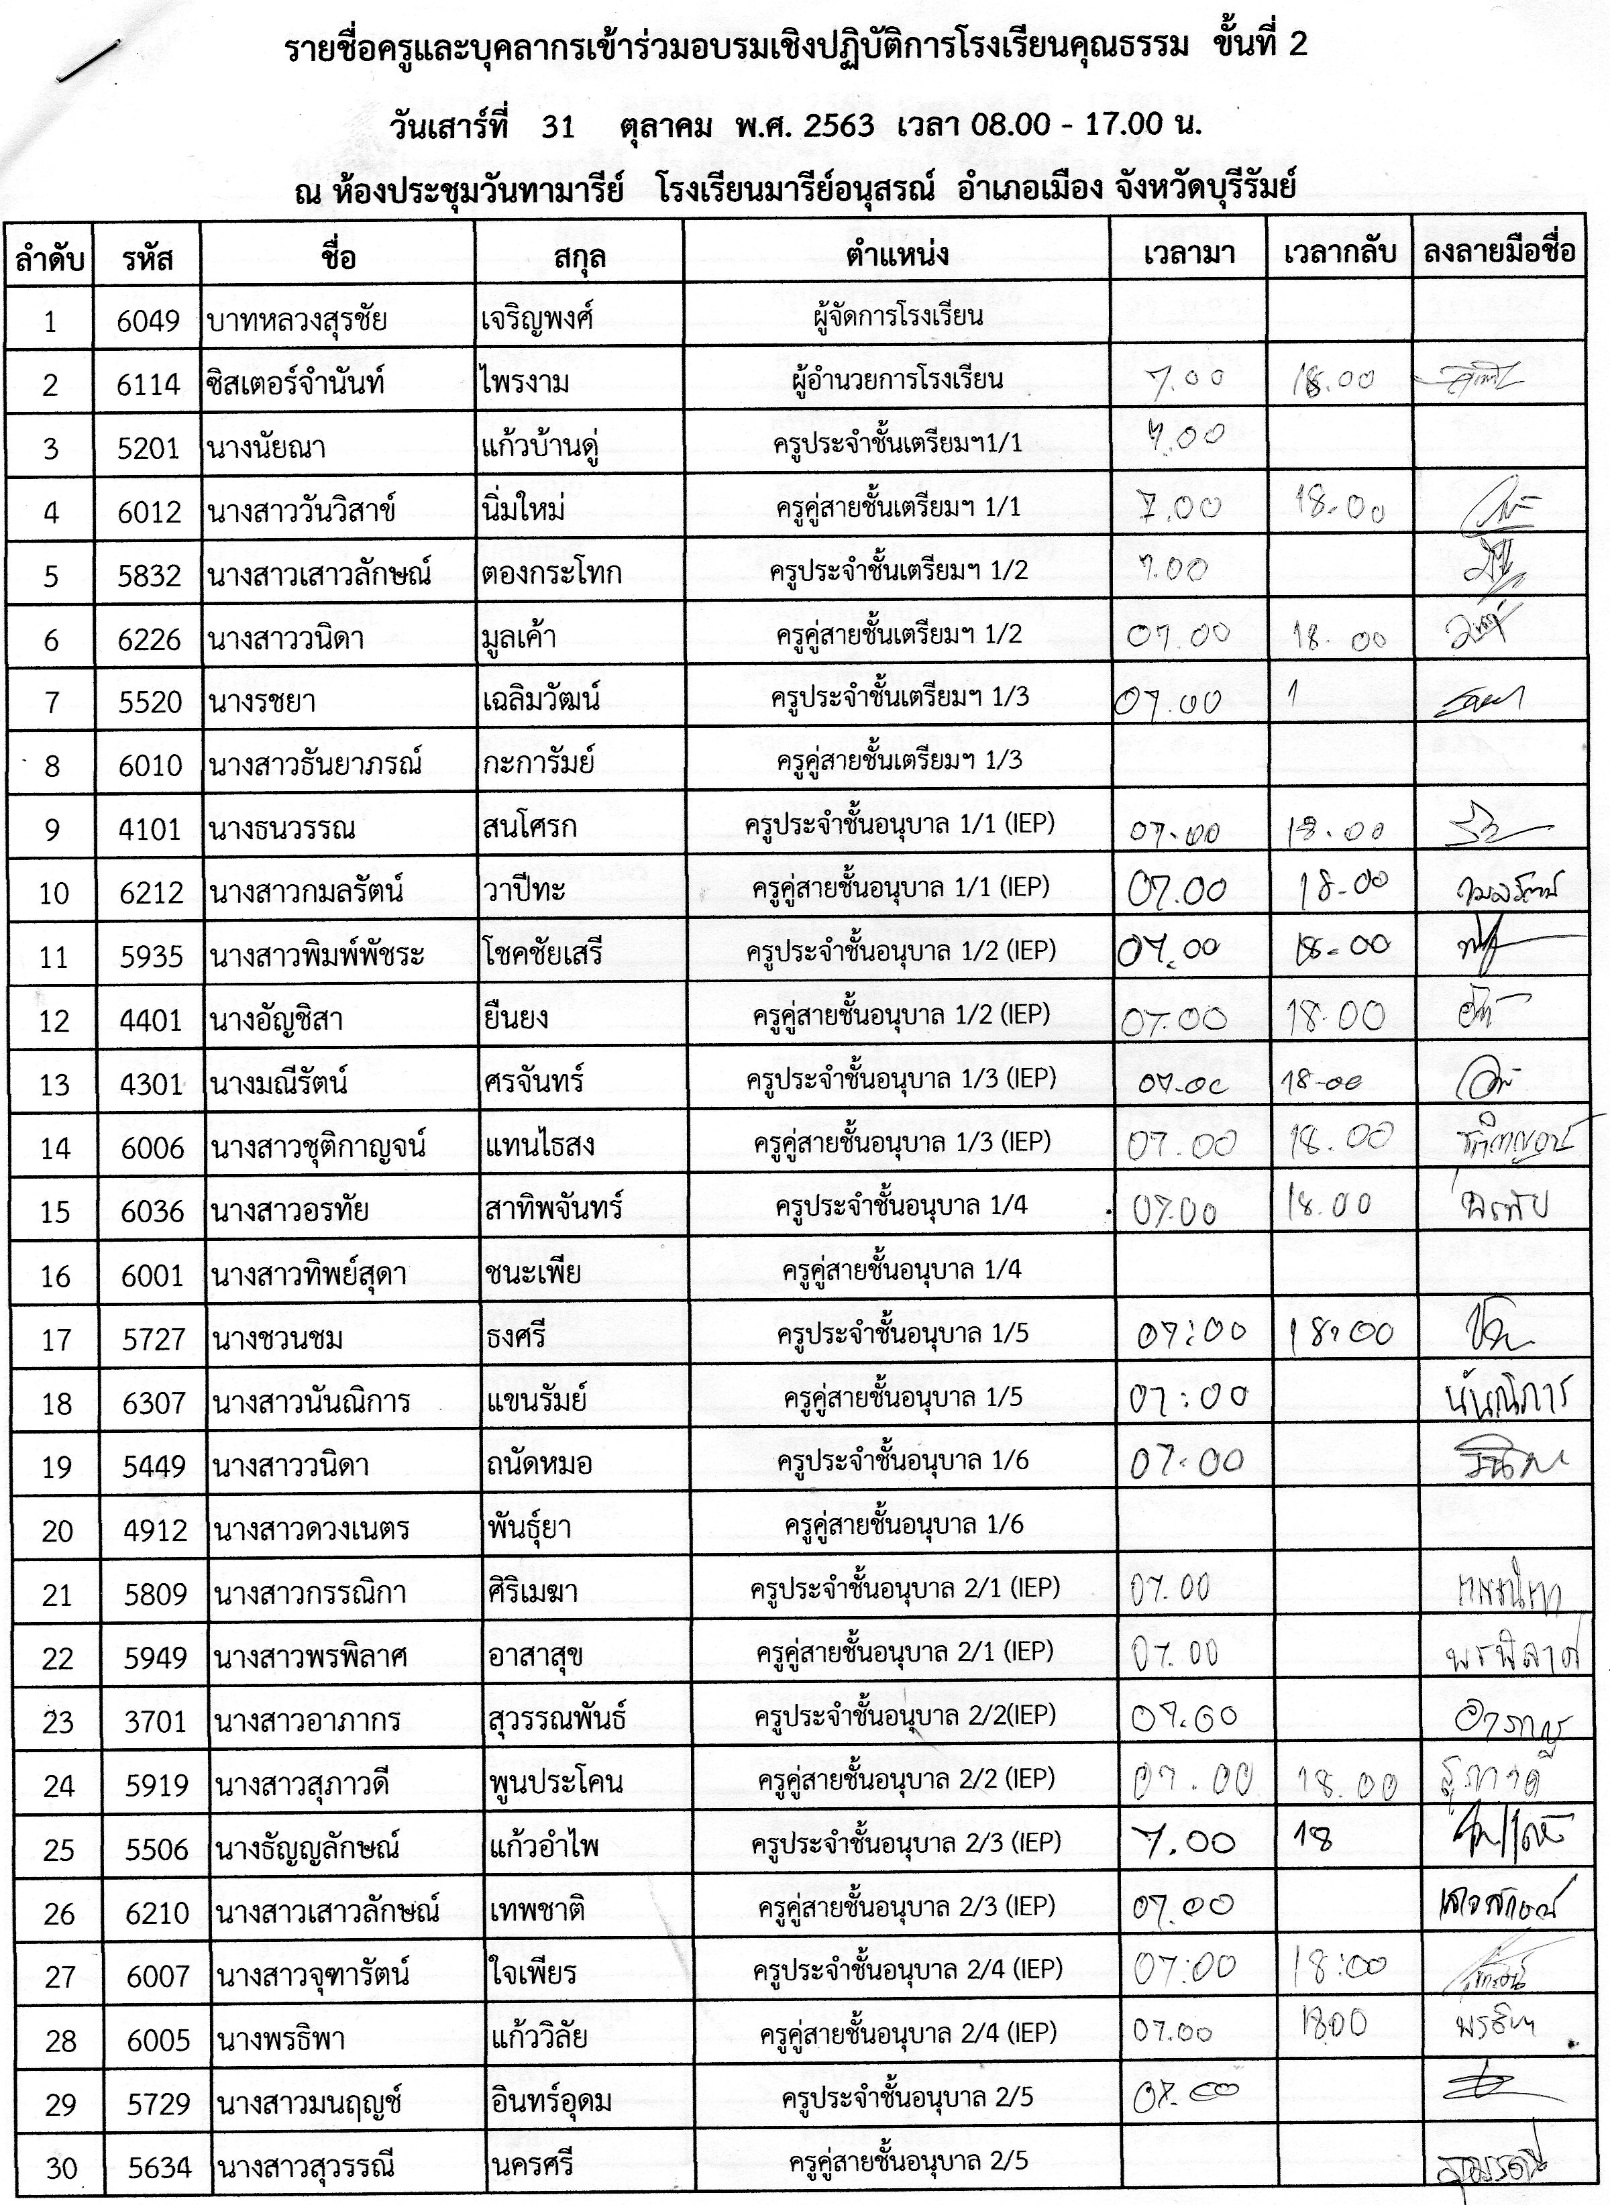 รายชื่อครูและบุคลากรเข้าร่วมอบรมเชิงปฏิบัติการโรงเรียนคุณธรรม ขั้นที่ 2
วันเสาร์ที่ 31 ตุลาคม พ.ศ. 2563 เวลา 08.00 - 17.00 น.
ณ ห้องประชุมวันทามารีย์ โรงเรียนมารีย์อนุสรณ์ อำเภอเมือง จังหวัดบุรีรัมย์
ลำดับ รหัส ชื่อ สกุล ตำแหน่ง เวลามา เวลากลับ ลงลายมือชื่อ
1 6049 บาทหลวงสุรชัย เจริญพงศ์ ผู้จัดการโรงเรียน
2 6114 ซิสเตอร์จำนันท์ ไพรงาม ผู้อำนวยการโรงเรียน 7.00 18.00
3 5201 นางนัยณา แก้วบ้านดู่ ครูประจำชั้นเตรียมฯ1/1 7.00
4 6012 นางสาววันวิสาข์ นิ่มใหม่ ครูคู่สายชั้นเตรียมฯ 1/1 7.00 18.00
5 5832 นางสาวเสาวลักษณ์ ตองกระโทก ครูประจำชั้นเตรียมฯ 1/2 7.00
6 6226 นางสาววนิดา มูลเค้า ครูคู่สายชั้นเตรียมฯ 1/2 07.00 18.00
7 5520 นางรชยา เฉลิมวัฒน์ ครูประจำชั้นเตรียมฯ 1/3 07.00 1
8 6010 นางสาวธันยาภรณ์ กะการัมย์ ครูคู่สายชั้นเตรียมฯ 1/3
9 4101 นางธนวรรณ สนโศรก ครูประจำชั้นอนุบาล 1/1 (IEP) 07.00 18.00
10 6212 นางสาวกมลรัตน์ วาปีทะ ครูคู่สายชั้นอนุบาล 1/1 (IEP) 07.00 18-00 กมลรัตน์
11 5935 นางสาวพิมพ์พัชระ โชคชัยเสรี ครูประจำชั้นอนุบาล 1/2 (IEP) 07.00 18-00
12 4401 นางอัญชิสา ยืนยง ครูคู่สายชั้นอนุบาล 1/2 (IEP) 07.00 18.00
13 4301 นางมณีรัตน์ ศรจันทร์ ครูประจำชั้นอนุบาล 1/3 (IEP) 07-00 18-00
14 6006 นางสาวชุติกาญจน์ แทนไธสง ครูคู่สายชั้นอนุบาล 1/3 (IEP) 07.00 18.00 ชุติกาญจน์
15 6036 นางสาวอรทัย สาทิพจันทร์ ครูประจำชั้นอนุบาล 1/4 07.00 18.00 อรทัย
16 6001 นางสาวทิพย์สุดา ชนะเพีย ครูคู่สายชั้นอนุบาล 1/4
17 5727 นางชวนชม ธงศรี ครูประจำชั้นอนุบาล 1/5 07:00 18:00
18 6307 นางสาวนันณิการ แขนรัมย์ ครูคู่สายชั้นอนุบาล 1/5 07:00 นันณิการ
19 5449 นางสาววนิดา ถนัดหมอ ครูประจำชั้นอนุบาล 1/6 07.00 วนิดา
20 4912 นางสาวดวงเนตร พันธุ์ยา ครูคู่สายชั้นอนุบาล 1/6
21 5809 นางสาวกรรณิกา ศิริเมฆา ครูประจำชั้นอนุบาล 2/1 (IEP) 07.00 กรรณิกา
22 5949 นางสาวพรพิลาศ อาสาสุข ครูคู่สายชั้นอนุบาล 2/1 (IEP) 07.00 พรพิลาศ
23 3701 นางสาวอาภากร สุวรรณพันธ์ ครูประจำชั้นอนุบาล 2/2(IEP) 07.00 อาภากร
24 5919 นางสาวสุภาวดี พูนประโคน ครูคู่สายชั้นอนุบาล 2/2 (IEP) 07.00 18.00 สุภาวดี
25 5506 นางธัญญลักษณ์ แก้วอำไพ ครูประจำชั้นอนุบาล 2/3 (IEP) 7.00 18
26 6210 นางสาวเสาวลักษณ์ เทพชาติ ครูคู่สายชั้นอนุบาล 2/3 (IEP) 07.00 เสาวลักษณ์
27 6007 นางสาวจุฑารัตน์ ใจเพียร ครูประจำชั้นอนุบาล 2/4 (IEP) 07:00 18:00 จุฑารัตน์
28 6005 นางพรธิพา แก้ววิลัย ครูคู่สายชั้นอนุบาล 2/4 (IEP) 07.00 1800 พรธิพา
29 5729 นางสาวมนฤญช์ อินทร์อุดม ครูประจำชั้นอนุบาล 2/5 07.00
30 5634 นางสาวสุวรรณี นครศรี ครูคู่สายชั้นอนุบาล 2/5 สุวรรณี